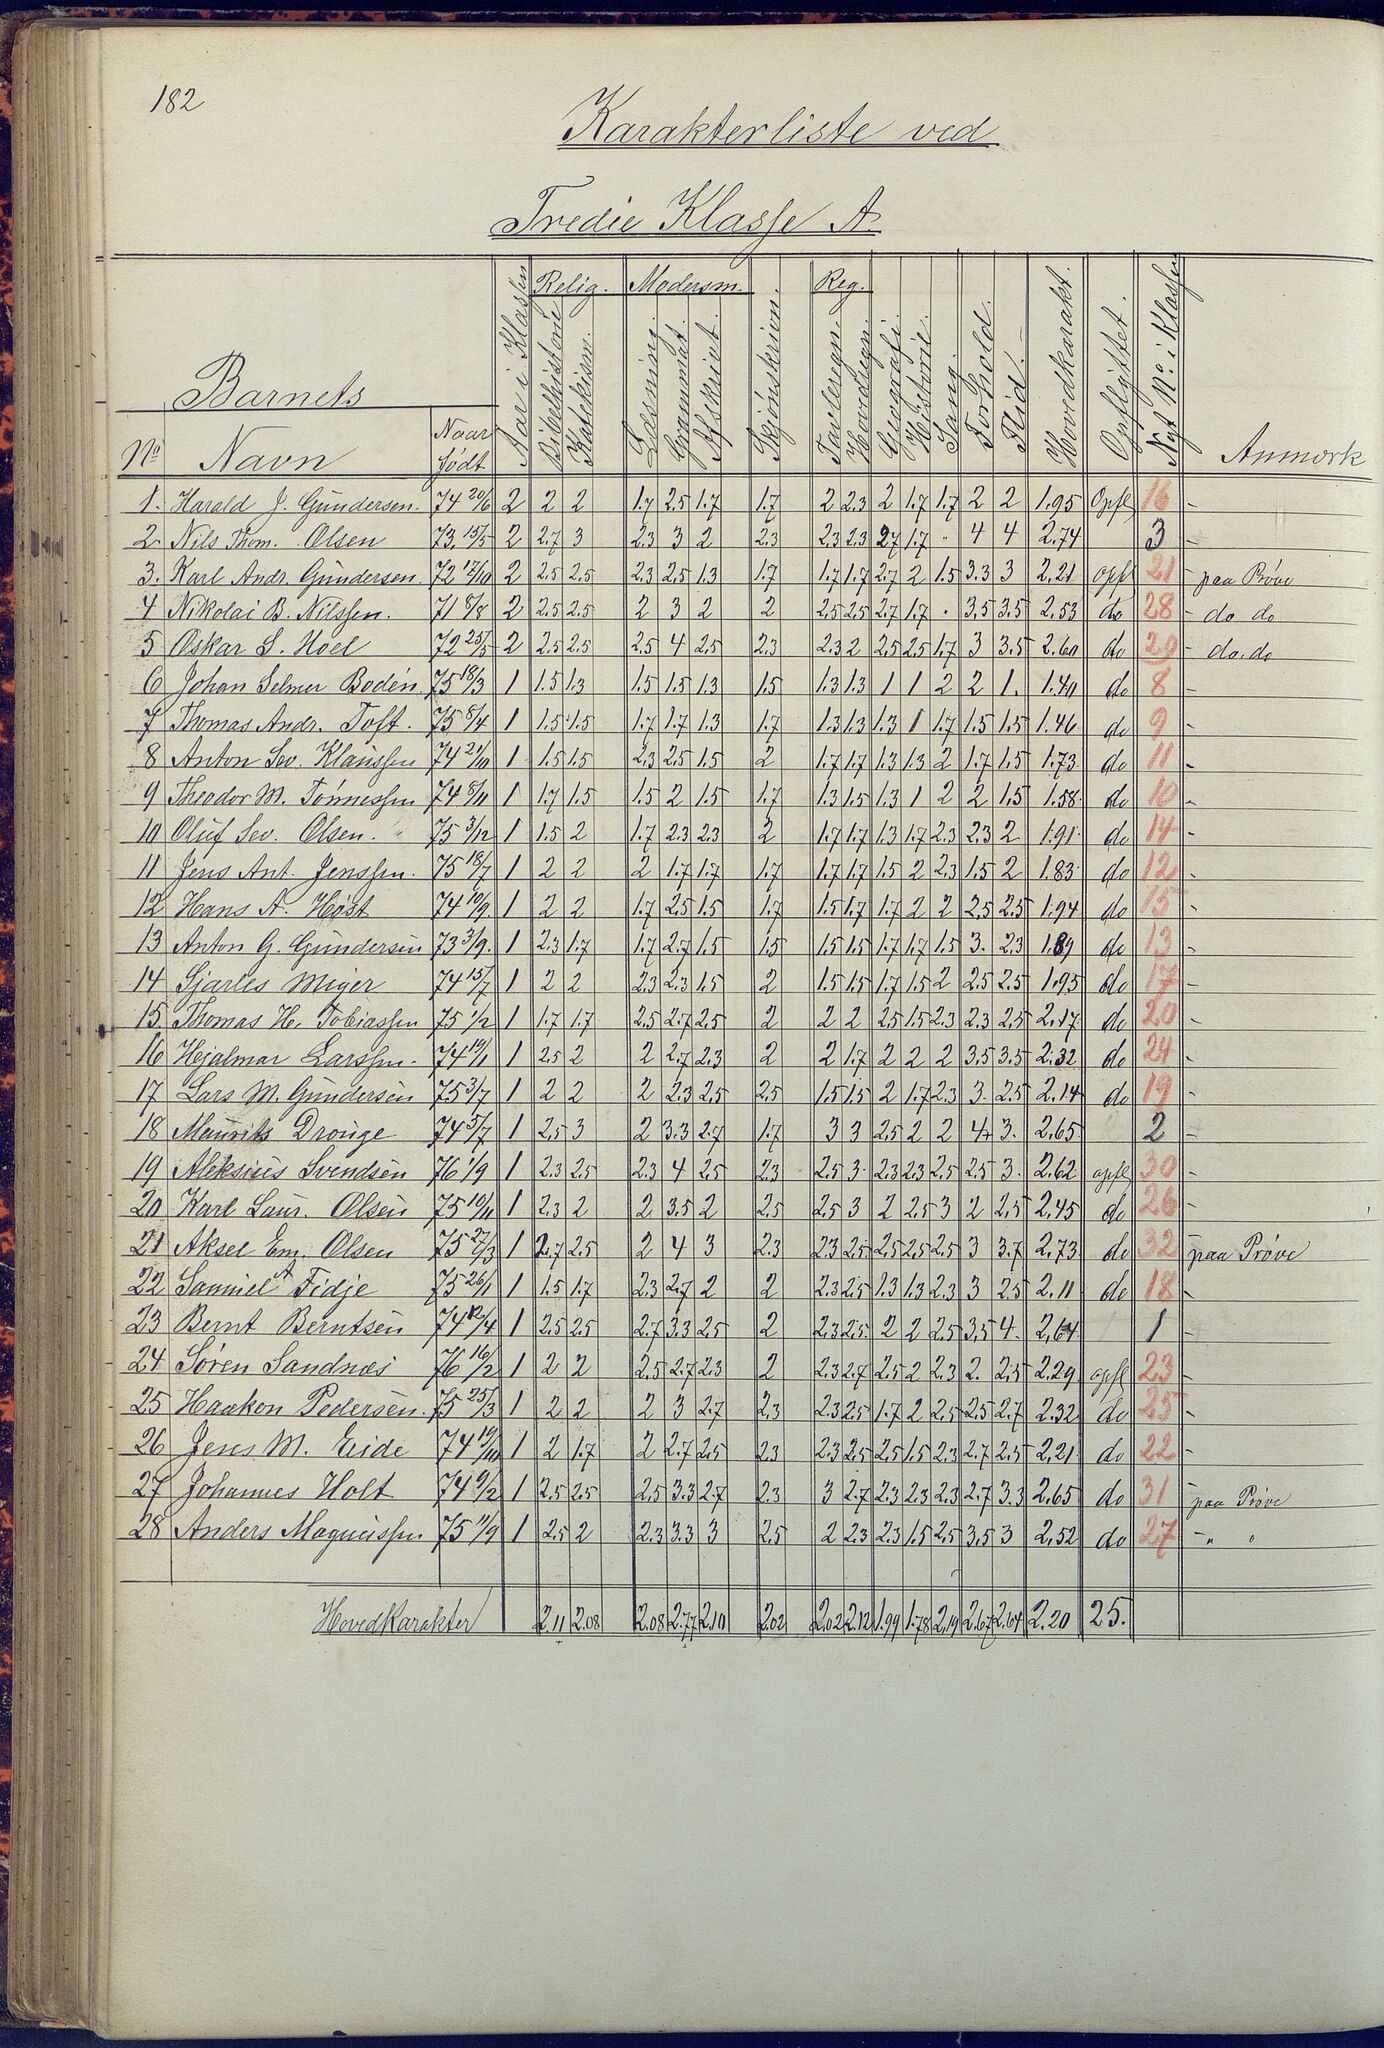 182
Karakterliste ved
Tredie Klasse A.
Barnets
No Navn Naar født Aar i Klassen Relig. Bibelhistorie Katekism. Modersm. Læsning. Grammat. Afskrivt. Skjönskrivn. Reg. Tavleregn. Hovedregn. Geografi. Historie. Sang. Forhold. Flid. Hovedkarakt. Opflyttet. Nyt No. i Klassen Anmærk
1. Harald J. Gundersen. 74 20/6 2 2 2 1.7 2.5 1.7 1.7 2 2.3 2 1.7 1.7 2 2 1.95 Opfl 16 -
2 Nils Thom. Olsen 73. 15/5 2 2.7 3 2.3 3 2 2.3 2.3 2.3 2.7 1.7 . 4 4 2.74 3 -
3. Karl Andr. Gundersen. 72 17/10 2 2.5 2.5 2.3 2.5 1.3 1.7 1.7 1.7 2.7 2 1.5 3.3 3 2.21 opfl 21 - paa Prøve
4 Nikolai B. Nilssen. 71 8/8 2 2.5 2.5 2 3 2 2 2.5 2.5 2.7 1.7 . 3.5 3.5 2.53 do 28 - do do
5 Oskar S. Hoel 72 25/5 2 2.5 2.5 2.5 4 2.5 2.3 2.3 2 2.5 2.5 1.7 3 3.5 2.60 do 29 - do. do
6 Johan Selmer Bodén. 75 18/3 1 1.5 1.3 1.5 1.5 1.3 1.5 1.3 1.3 1 1 2 2 1. 1.40 do 8 -
7 Thomas Andr. Toft. 75 8/4 1 1.5 1.5 1.7 1.7 1.3 1.7 1.3 1.3 1.3 1 1.7 1.5 1.5 1.46 do 9 -
8 Anton Sev. Klaussen 74 21/10 1 1.5 1.5 2.3 2.5 1.5 2 1.7 1.7 1.3 1.3 2 1.7 1.5 1.73 do 11 -
9 Theodor M. Tönnessen 74 8/11 1 1.7 1.5 1.5 2 1.5 1.7 1.3 1.5 1.3 1 2 2 1.5 1.58 do 10 -
10 Oluf Sev. Olsen. 75 3/12 1 1.5 2 1.7 2.3 2.3 2 1.7 1.7 1.3 1.7 2.3 2.3 2 1.91 do 14 -
11 Jens Ant. Jenssen. 75 18/7 1 2 2 2 1.7 1.7 1.7 1.7 1.7 1.5 2 2.3 1.5 2 1.83 do 12 -
12 Hans A. Høst 74 10/9 1 2 2 1.7 2.5 1.5 1.7 1.5 1.7 1.7 2 2 2.5 2.5 1.94 do 15 -
13 Anton G. Gundersen 73 3/9. 1 2.3 1.7 1.7 2.7 1.5 1.5 1.5 1.5 1.7 1.7 1.5 3. 2.3 1.89 do 13 -
14 Sjarles Meyer 74 15/7 1 2 2 2.3 2.3 1.5 2 1.5 1.5 1.7 1.5 2 2.5 2.5 1.95 do 17 -
15 Thomas H. Tobiassen 75 1/2 1 1.7 1.7 2.5 2.7 2.5 2 2 2 2.5 1.5 2.3 2.3 2.5 2.17 do 20 -
16 Hjalmar Larssen. 74 19/1 1 2.5 2 2 2.7 2.3 2 2 1.7 2 2 2 3.5 3.5 2.32 do 24 -
17 Lars M. Gundersen 75 3/7 1 2 2 2 2.3 2.5 2.5 1.5 1.5 2 1.7 2.3 3. 2.5 2.14 do 19 -
18 Maurits Drouge 74 5/7 1 2.5 3 2 3.3 2.7 1.7 3 3 2.5 2 2 4 3. 2.65 2 -
19 Aleksius Svendsen 76 1/9 1 2.3 2.5 2.3 4 2.5 2.3 2.5 3 2.3 2.3 2.5 2.5 3. 2.62 opfl 30 -
20 Karl Laur. Olsen 75 10/11 1 2.3 2 2 3.5 2 2.5 2.5 3 2 2.5 3 2 2.5 2.45 do 26 -
21 Aksel Em. Olsen 75 27/3 1 2.7 2.5 2 4 3 2.3 2.3 2.5 2.5 2.5 2.5 3 3.7 2.73 do 32 paa Prøve
22 Samuel A Fidje 75 26/1 1 1.5 1.7 2.3 2.7 2 2 2.3 2.5 1.3 1.3 2.3 3 2.5 2.11 do 18 -
23 Bernt Berntsen 74 12/4 1 2.5 2.5 2.7 3.3 2.5 2 2.3 2.5 2 2 2.5 3.5 4. 2.64 1 -
24 Søren Sandnæs 76 16/2 1 2 2 2.5 2.7 2.3 2 2.3 2.7 2.5 2 2.3 2. 2.5 2.29 opfl 23 -
25 Haakon Pedersen. 75 25/3 1 2 2 2 3 2.7 2.3 2.3 2.5 1.7 2 2.5 2.5 2.7 2.32 do 25 -
26 Jens M. Eide 74 19/10 1 2 1.7 2 2.7 2.5 2.3 2.3 2.5 2.5 1.5 2.3 2.7 2.5 2.21 do 22 -
27 Johannes Holt 74 9/2 1 2.5 2.5 2.5 3.3 2.7 2.3 3 2.7 2.3 2.3 2.3 2.7 3.3 2.65 do 31 paa Prøve
28 Anders Magnussen 75 11/9 1 2.5 2 2.3 3.3 3 2.5 2 2.3 2.3 1.5 2.5 3.5 3 2.52 do 27 - " "
Hovedkarakter 2.11 2.08 2.08 2.77 2.10 2.02 2.02 2.12 1.99 1.78 2.19 2.67 2.64 2.20 25.